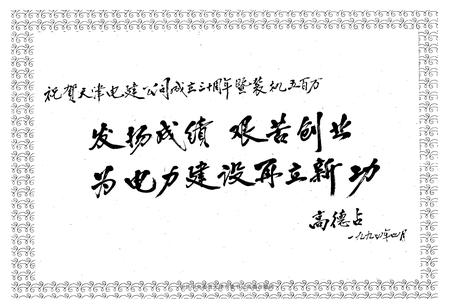 祝贺天津电建公司成立三十周年暨装机五百万
发扬成绩 艰苦创业
为电力建设再立新功
高德占
一九九四年七月